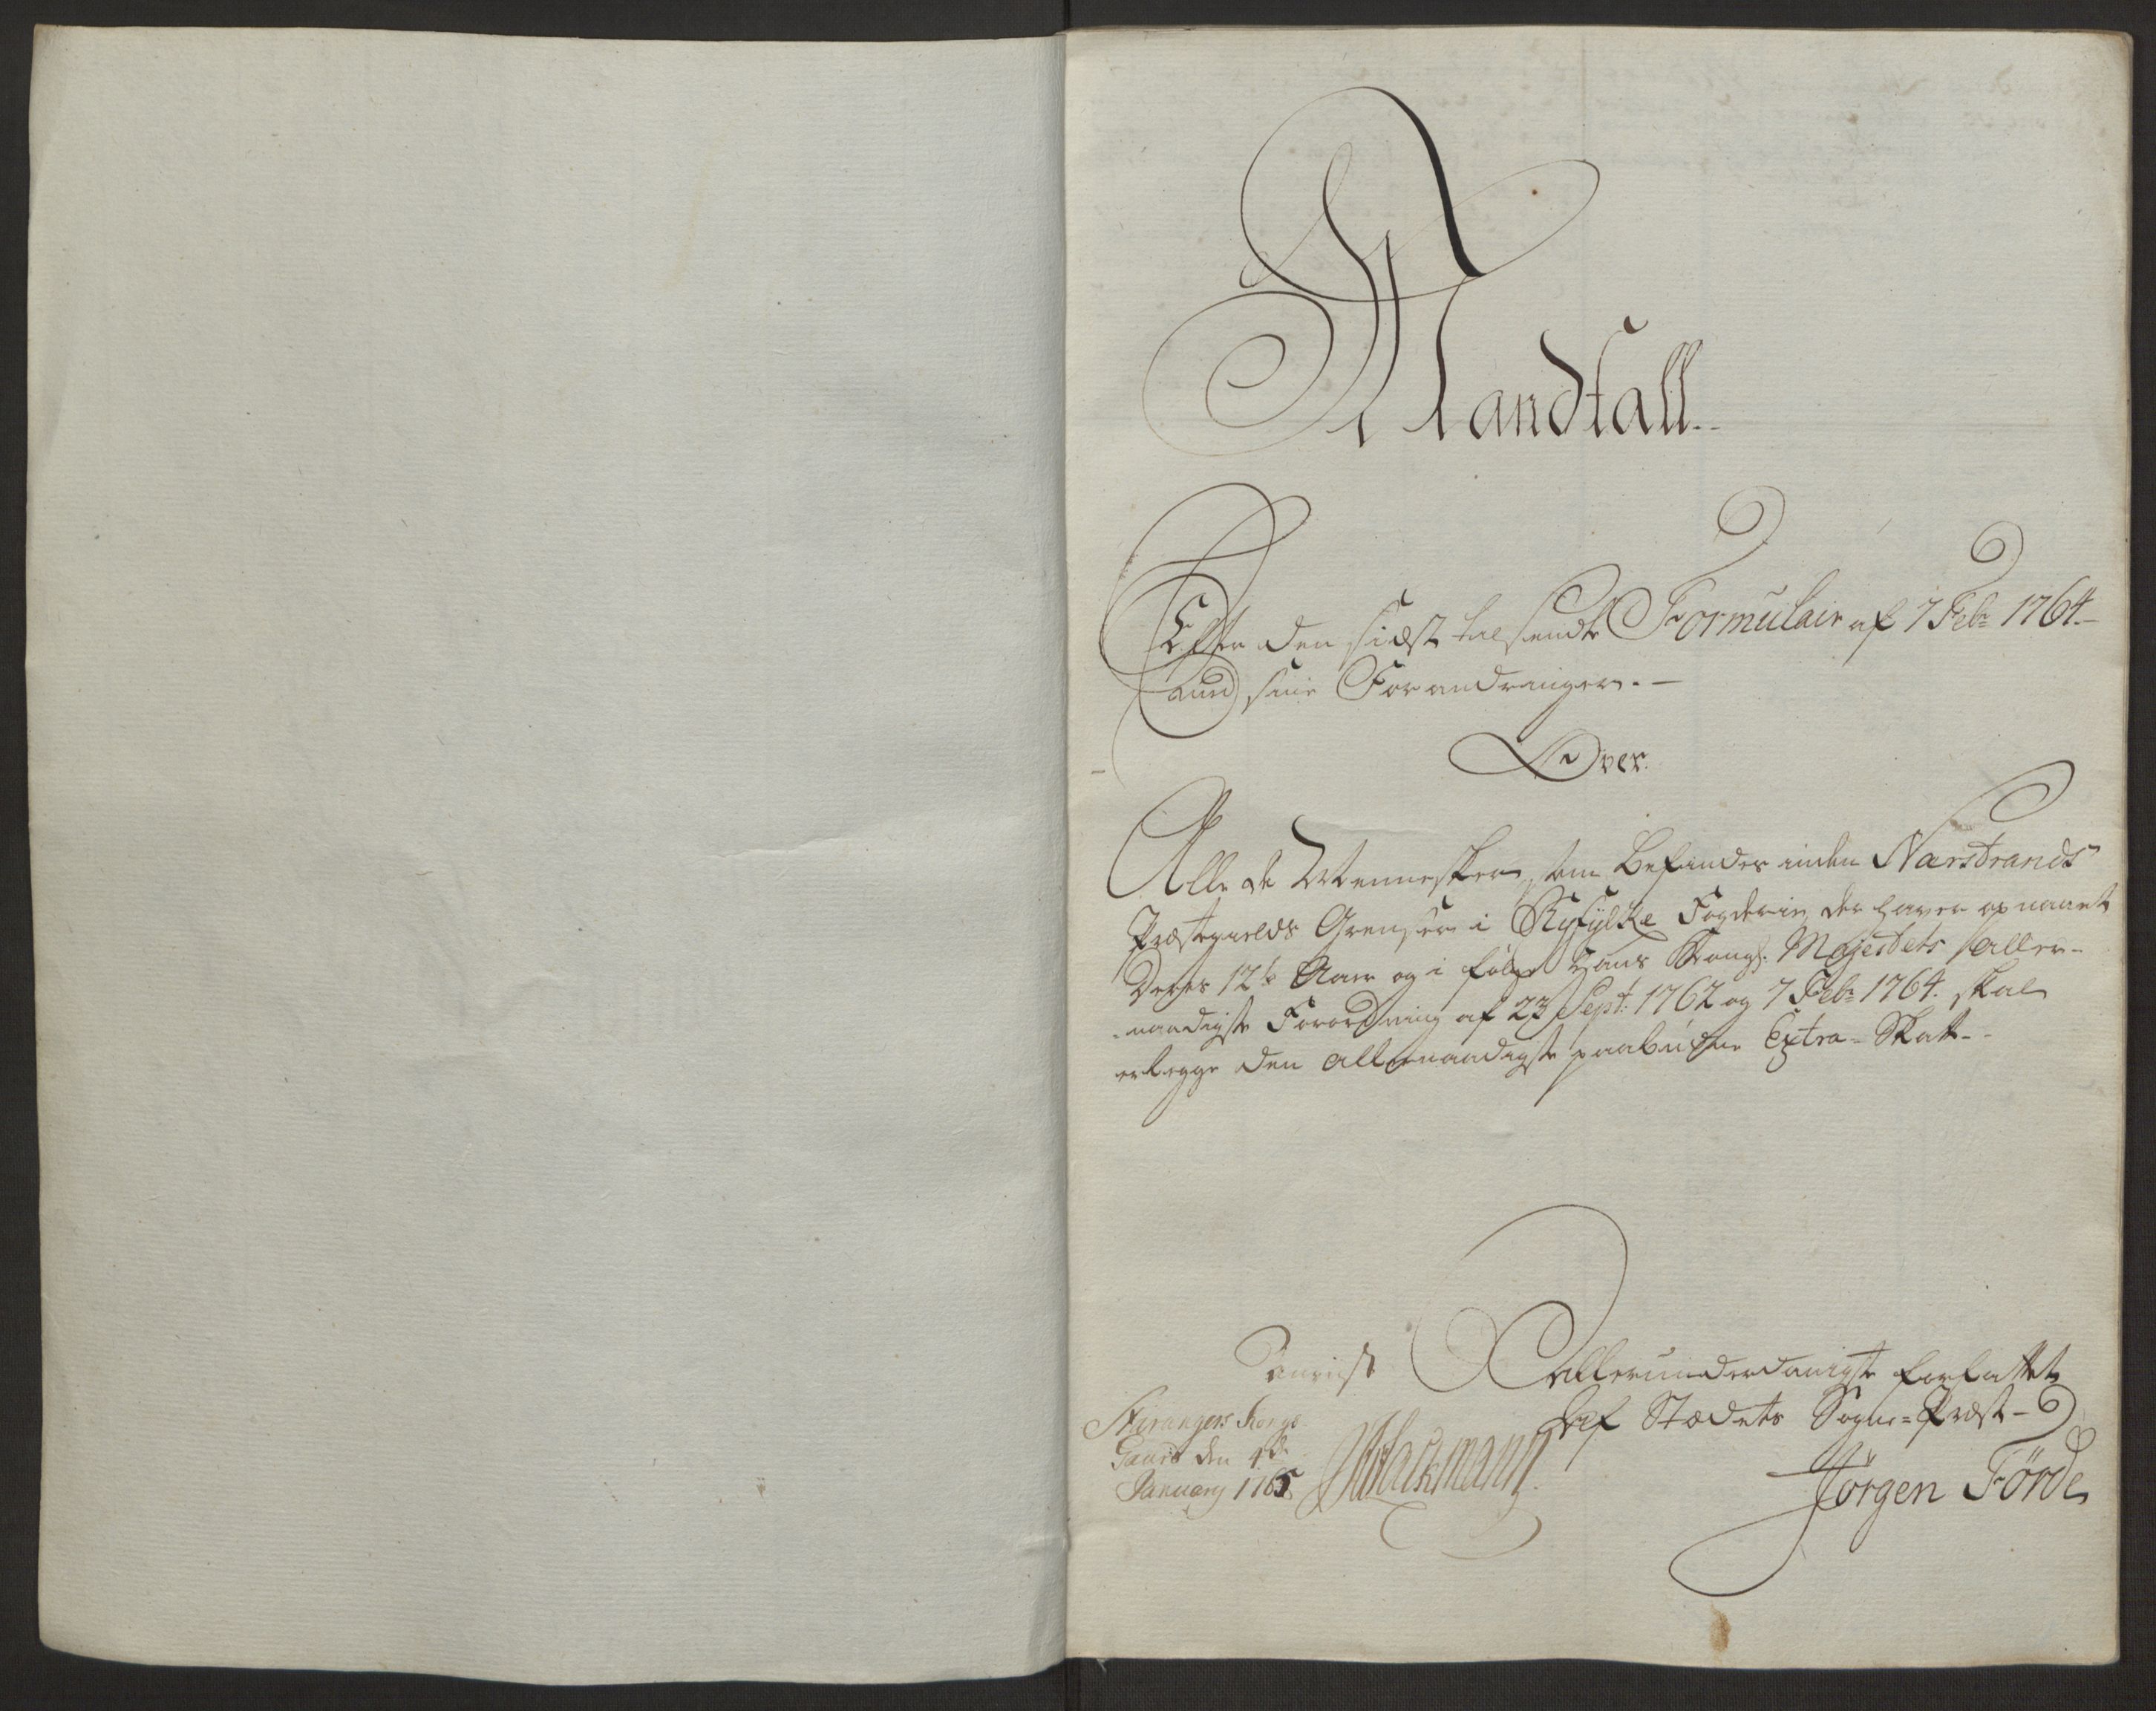 Mandtall
Efter den sidst tilsendte Formulair af 7 Febr: 1764.
med sine Forandringer.
Over
Alle de Mennesker, som befindes inden Narstrands
Præstegields Grenser i Ryfylke Fogderie, der haver opnaaet
deres 12te Aar og i følge Hans Kongl: Majestets aller-
naadigste Forordning af 23 Sept: 1762 og 7 Febr: 1764. skal
erlegge den allernaadigste paabudne Extra-Skatt-
allerunderdanigst forfattet
af Stædets Sogne-Præst
Jörgen Förde
den 4de
January 1765